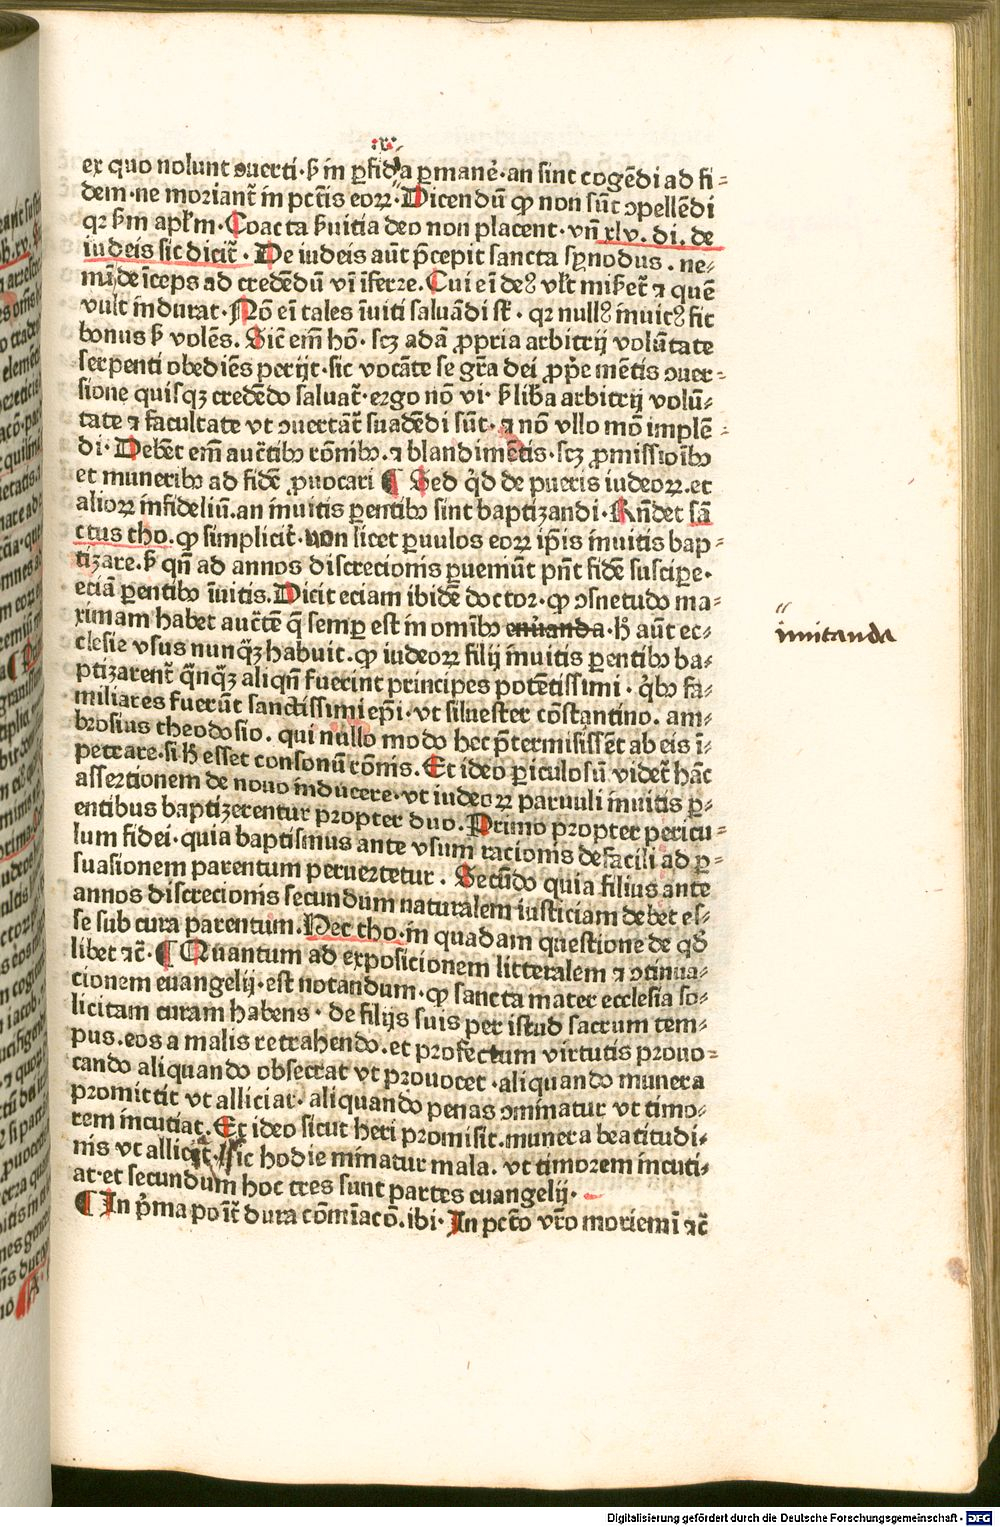 ex quo nolunt ↄuerti· ſʒ in ꝑfidia ꝑmane᷒· an ſint cogēdi ad fi⸗
dem·ne moriant᷑ in pctīs eoꝝ·Dicendū ꝙ non ſūt ↄpellēdi
qꝛ ſm apłm·Coacta ſuitia deo non placent·vn̄ xlv. di. de
iudeis ſic dicit᷑·De iudeis aut̄ p̄cepit ſancta ſynodus. ne⸗
mī deīceps ad credēdū vī īferre.Cui eī deꝰ vłt miſ̄et᷑ ⁊ quē
vult indurat·Nō eī tales īuiti ſaluādi ſt̄· qꝛ nullꝰ inuitꝰ fit
bonus ſʒ volēs. Sic̄ em̄ hō· ſcʒ adā ꝓpria arbitrij volūtate
ſerpenti obediēs perijt·ſic vocāte ſe gr̄a dei ꝓp̄e mētis ↄuer⸗
ſione quiſqʒ credēdo ſaluat᷑·ergo nō vi· ſʒ liba arbitrij volū⸗
tate ⁊ facultate vt ↄuertāt᷑ ſuadēdi ſūt·⁊ nō vllo mō implē⸗
di·Debēt em̄ auc̄tibꝰ rōmbꝰ·⁊ blandimētis·ſcʒ ꝓmiſſioībꝰ
et muneribꝰ ad fidē ꝓuocari ¶ Sed qͥd de pueris iudeoꝝ.et
alioꝝ infideliū.an inuitis ꝑentibꝰ ſint baptizandi·Rn̄det ſā
ctus tho.ꝙ ſimpliciť non licet ꝑuulos eoꝝ ip̄is inuitis bap⸗
tizare.ſʒ qn̄ ad annos diſcrecionis ꝑuemūt pn̄t fidē ſuſciꝑe·
eciā ꝑentibꝰ īuitis.Dicit eciam ibidē doctor·ꝙ ↄſuetudo ma⸗
ximam habet auc̄tē q̄ ſemꝑ eſt in omībꝰ enuanda·h̄ aūt ec⸗
cleſie vſus nunqͣʒ habuit.ꝙ iudeoꝝ filij inuitis ꝑentibꝰ ba⸗
ptizarent᷑ qͣnqͣʒ aliqn̄ fuerint principes potētiſſimi·qͥbꝰ fa⸗
miliares fuerūt ſanctiſſimi ep̄i·vt ſilueſter cōſtantino. am⸗
broſius theodoſio. qui nullo modo hec p̄termiſiſſēt ab eis ī⸗
petrare·ſi h̄ eſſet conſonū rōnis.Et ideo ꝑiculoſū videt᷑ hāc
aſſertionem de nouo inducere·vt iudeoꝝ paruuli inuitis ꝑ⸗
entibus baptizerentur propter duo.Primo propter pericu⸗
lum fidei·quia baptiſmus ante vſum racionis defacili ad ꝑ⸗
ſuaſionem parentum peruertetur. Secūdo quia filius ante
annos diſcrecionis ſecundum naturalem iuſticiam debet eſ⸗
ſe ſub cura parentum.Hec tho·in quadam queſtione de qͦd
libet ⁊c̄·¶ Quantum ad expoſicionem litteralem ⁊ ↄtinua⸗
cionem euangelij·eſt notandum·ꝙ ſancta mater eccleſia ſo⸗
licitam curam habens· de filijs ſuis per iſtud ſacrum tem⸗
pus.eos a malis retrahendo.et profectum virtutis prouo⸗
cando aliquando obſecrat vt prouocet·aliquando munera
promittit vt alliciat·aliquando penas ↄminatur vt timo⸗
rem incutiat.Et ideo ſicut heri promiſit.munera beatitudi⸗
nis vt alliciat·ſic hodie minatur mala. vt timorem incuti⸗
at·et ſecundum hoc tres ſunt partes euangelij·
¶ In pͥma poīt᷑ dura cōmīacō.ibi·In pctō vr̄o moriemī ⁊c̄
imitanda
Digitalisierung gefördert durch die Deutsche Forschungsgemeinschaft - DFG